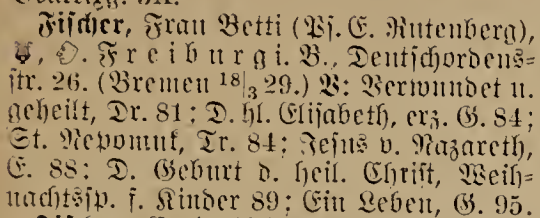 Fischer, Frau Betti (Ps. E. Rutenberg),
Freiburg i. B., Deutschordens=
str. 26. (Bremen 18|3 29.) V: Verwundet u.
geheilt, Dr. 81; D. hl. Elisabeth, erz. G. 84;
St. Nepomuk, Tr. 84; Jesus v. Nazareth,
E. 88; D. Geburt d. heil. Christ, Weih=
nachtssp. f. Kinder 89; Ein Leben, G. 95.